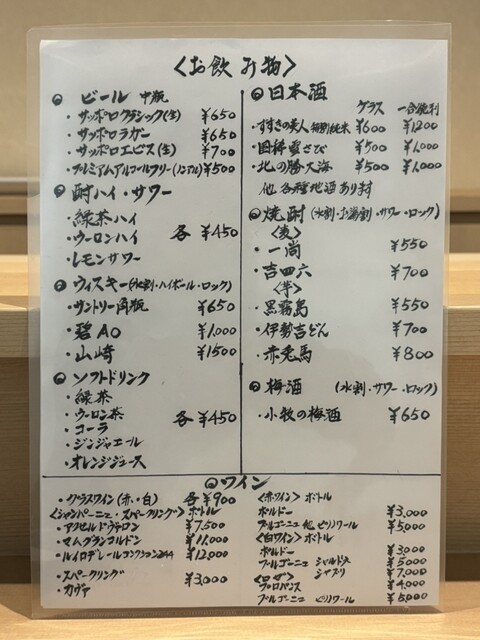 〈お飲み物〉
◎ ビール 中瓶
・サッポロクラシック(生) ¥650
・サッポロラガー ¥650
・サッポロエビス(生) ¥700
・プレミアムアルコールフリー(ノンアル) ¥500
◎酎ハイ・サワー
・緑茶ハイ
・ウーロンハイ 各 ¥450
・レモンサワー
◎ウィスキー(水割・ハイボール・ロック)
・サントリー角瓶 ¥650
・碧AO ¥1,000
・山崎 ¥1500
◎ソフトドリンク
・緑茶
・ウーロン茶 各 ¥450
・コーラ
・ジンジャエール
・オレンジジュース
◎日本酒
グラス 一合徳利
・すすきの美人 特別純米 ¥600 ¥1200
・国稀 ¥500 ¥1,000
・北の勝大海 ¥500 ¥1,000
他 各種地酒あり〼
◎焼酎(水割・お湯割・サワー・ロック)
〈麦〉
・一尚 ¥550
・吉四六 ¥700
〈芋〉
・黒霧島 ¥550
・伊勢吉どん ¥700
・赤兎馬 ¥800
◎梅酒 (水割・サワー・ロック)
・小牧の梅酒 ¥650
◎ワイン
・グラスワイン(赤・白) 各¥900
〈シャンパーニュ・スパークリング〉ボトル
・アクセルドヴァロン ¥7,500
・マムグランコルドン ¥11,000
・ルイロデレールコレクション244 ¥12,000
・スパークリング ¥3,000
・カヴァ
〈赤ワイン〉ボトル
ボルドー ¥3,000
ブルゴーニュ ピノノワール ¥5,000
〈白ワイン〉ボトル
ボルドー ¥3,000
ブルゴーニュ シャルドネ ¥5000
シャブリ ¥7,000
〈ロゼ〉
プロバンス ¥4,000
ブルゴーニュ ピノノワール ¥5,000